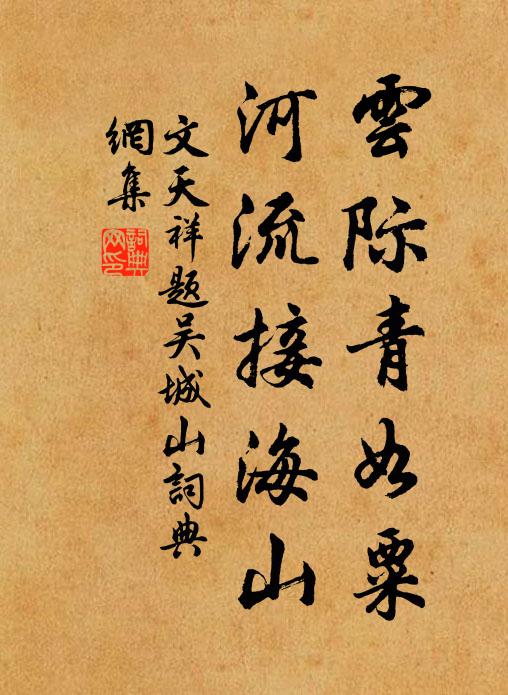 雲际青如粟
河流接海山
文天祥题吴城山詞典
網集
詞典網印